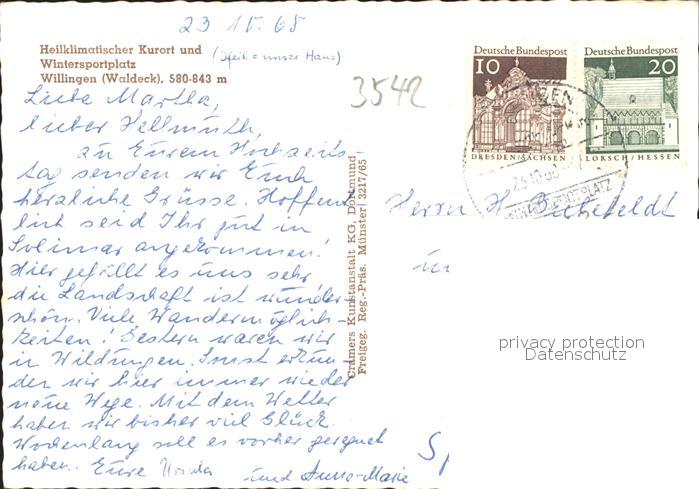 23 10. 68
Heilklimatischer Kurort und
Wintersportplatz
Willingen (Waldeck), 580-843 m
(Pfeil = unser Haus)
3542
Liebe Martha,
lieber Hellmuth,
zu Eurem Hochzeits-
tag senden wir Euch
herzliche Grüsse. Hoffent-
lich seid Ihr gut in
angekommen!
Hier gefällt es uns sehr
die Landschaft ist wunder-
schön. Viele Wandermöglich-
keiten! Gestern waren wir
in Wildungen. Sonst erkun-
den wir hier immer wieder
neue Wege. Mit dem Wetter
haben wir bisher viel Glück.
Wochenlang soll es vorher geregnet
haben. Eure Ursula
und Anne-Marie
Cramers Kunstanstalt KG. Dortmund
Freigeg. Reg.-Präs. Münster 3217/65
Deutsche Bundespost
10
DRESDEN/SACHSEN
Deutsche Bundespost
20
LORSCH/HESSEN
Herrn H.
in
privacy protection
Datenschutz